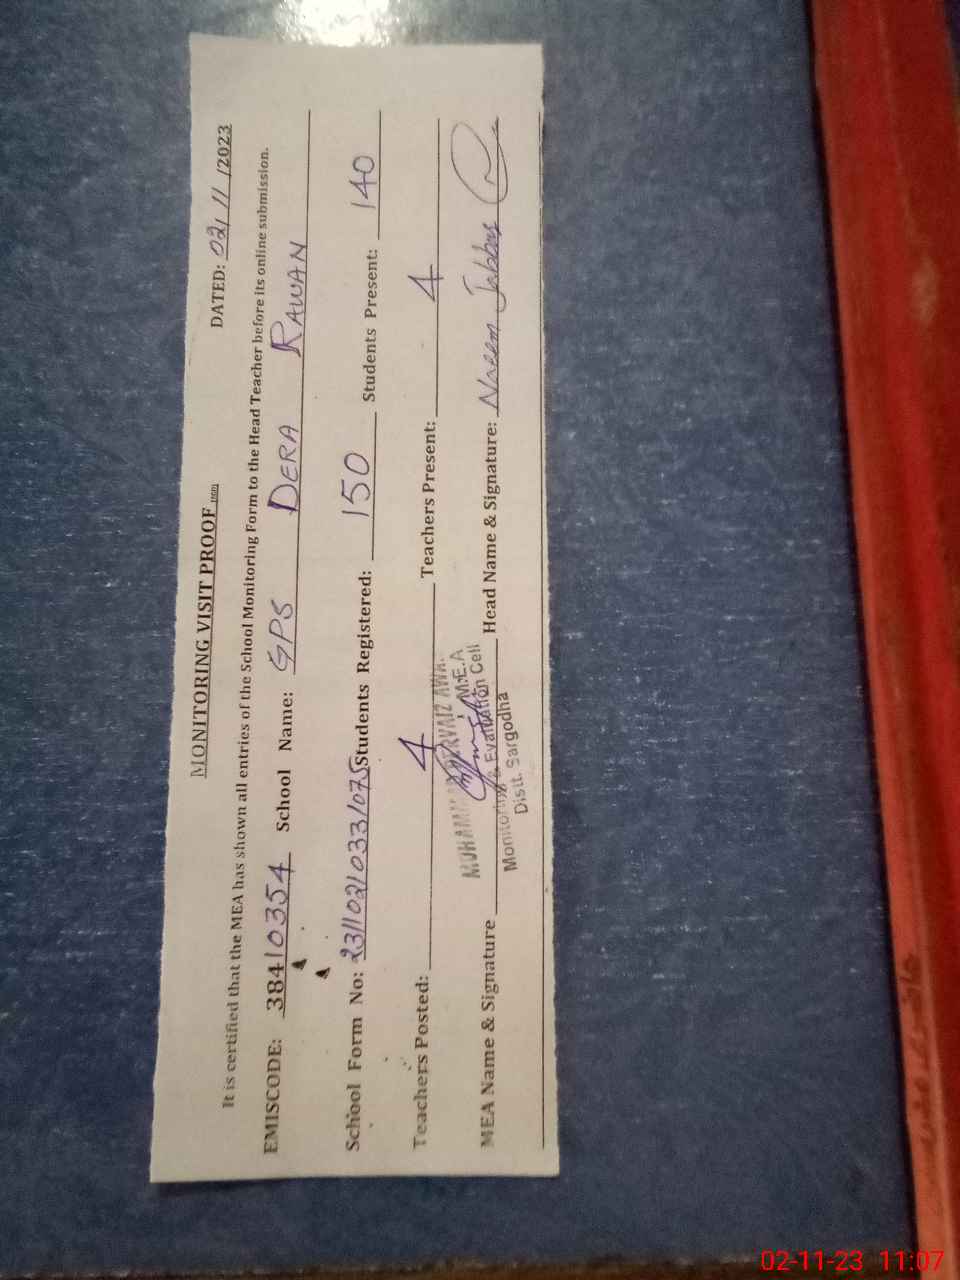 MONITORING VISIT PROOF
DATED: 02/11/2023
It is certified that the MEA has shown all entries of the School Monitoring Form to the Head Teacher before its online submission.
EMISCODE: 38410354 School Name: GPS DERA RAWAN
School Form No: 23110210331075 Students Registered: 150 Students Present: 140
Teachers Posted: 4 Teachers Present: 4
MEA Name & Signature Head Name & Signature: Naeem Jabbar
M.E.A
Monitoring & Evaluation Cell
Distt. Sargodha
02-11-23 11:07